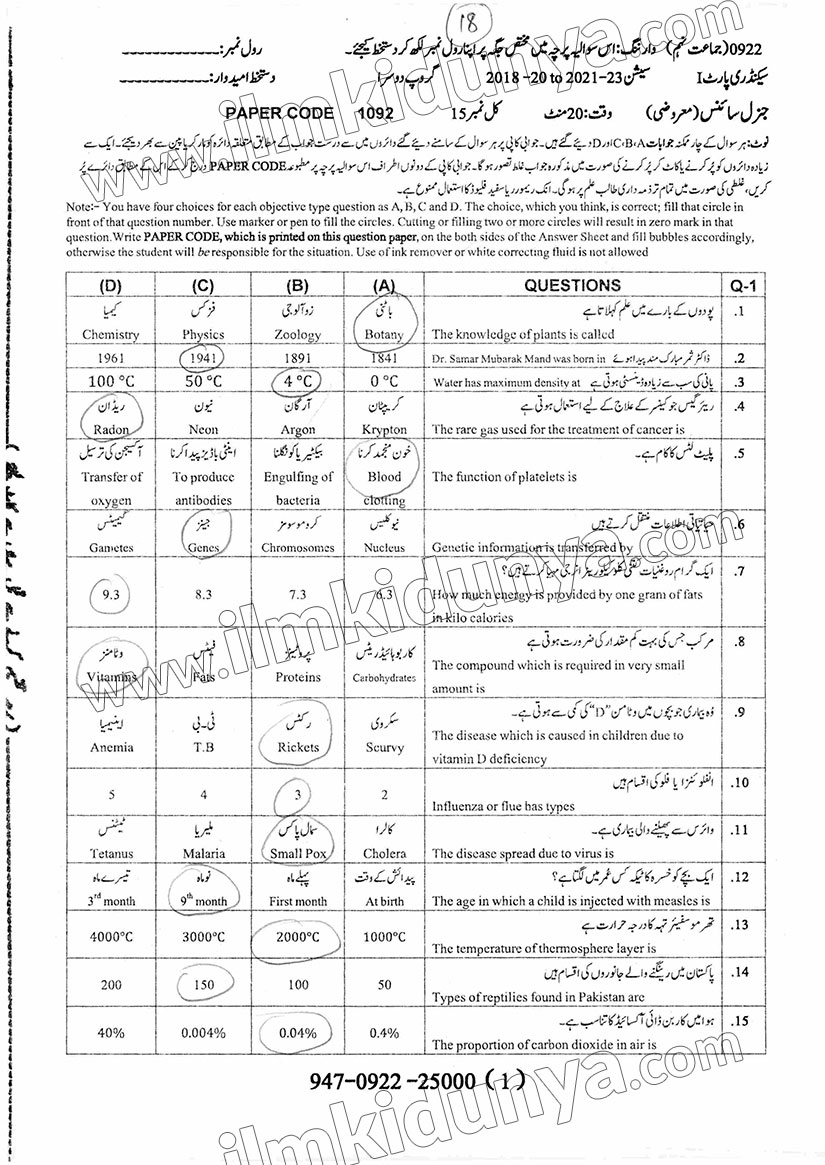 18
0922 (جماعت نہم) وارننگ: اس سوالیہ پرچہ میں مختص جگہ پر اپنا رول نمبر لکھ کر دستخط کیجئے۔ رول نمبر:
سیکنڈری پارٹ I سیشن 2018 -20 to 2021-23 گروپ دوسرا دستخط امیدوار:
جنرل سائنس (معروضی) وقت: 20 منٹ کل نمبر 15 PAPER CODE 1092
نوٹ: ہر سوال کے چار ممکنہ جوابات A، B، C اور D دیئے گئے ہیں۔ جوابی کاپی پر ہر سوال کے سامنے دیئے گئے دائروں میں سے درست جواب کے مطابق متعلقہ دائرہ کو مارکر یا پین سے بھر دیجئے۔ ایک سے
زیادہ دائروں کو پُر کرنے یا کاٹ کر پُر کرنے کی صورت میں مذکورہ جواب غلط تصور ہوگا۔ جوابی کاپی کے دونوں اطراف اس سوالیہ پرچہ پر مطبوعہ PAPER CODE درج کر کے اس کے مطابق دائرے پُر
کریں، غلطی کی صورت میں تمام تر ذمہ داری طالب علم پر ہوگی۔ انک ریموور یا سفید فلیوڈ کا استعمال ممنوع ہے۔
Note:- You have four choices for each objective type question as A, B, C and D. The choice, which you think, is correct; fill that circle in
front of that question number. Use marker or pen to fill the circles. Cutting or filling two or more circles will result in zero mark in that
question. Write PAPER CODE, which is printed on this question paper, on the both sides of the Answer Sheet and fill bubbles accordingly,
otherwise the student will be responsible for the situation. Use of ink remover or white correcting fluid is not allowed
(D) (C) (B) (A) QUESTIONS Q-1
کیمیا فزکس زوآلوجی باٹنی پودوں کے بارے میں علم کہلاتا ہے .1
Chemistry Physics Zoology Botany The knowledge of plants is called
1961 1941 1891 1841 Dr. Samar Mubarak Mand was born in ڈاکٹر ثمر مبارک مند پیدا ہوئے .2
100 °C 50 °C 4 °C 0 °C Water has maximum density at پانی کی سب سے زیادہ ڈینسٹی ہوتی ہے .3
ریڈان نیون آرگان کرپٹان ریئر گیس جو کینسر کے علاج کے لیے استعمال ہوتی ہے .4
Radon Neon Argon Krypton The rare gas used for the treatment of cancer is
آکسیجن کی ترسیل اینٹی باڈیز پیدا کرنا بیکٹیریا کو نگلنا خون منجمد کرنا پلیٹ لٹس کا کام ہے۔ .5
Transfer of To produce Engulfing of Blood The function of platelets is
oxygen antibodies bacteria clotting
گیمیٹس جینز کروموسومز نیوکلیس حیاتیاتی اطلاعات منتقل کرتے ہیں .6
Gametes Genes Chromosomes Nucleus Genetic information is transferred by
ایک گرام روغنیات کتنی کلو کیلوریز انرجی مہیا کرتے ہیں؟ .7
9.3 8.3 7.3 6.3 How much energy is provided by one gram of fats
in kilo calories
وٹامنز فیٹس پروٹینز کاربوہائیڈریٹس مرکب جس کی بہت کم مقدار کی ضرورت ہوتی ہے .8
Vitamins Fats Proteins Carbohydrates The compound which is required in very small
amount is
اینیمیا ٹی۔بی رکٹس سکروی وہ بیماری جو بچوں میں وٹامن "D" کی کمی سے ہوتی ہے۔ .9
Anemia T.B Rickets Scurvy The disease which is caused in children due to
vitamin D deficiency
انفلوئنزا یا فلو کی اقسام ہیں .10
5 4 3 2 Influenza or flue has types
ٹیٹنس ملیریا سمال پاکس کالرا وائرس سے پھیلنے والی بیماری ہے۔ .11
Tetanus Malaria Small Pox Cholera The disease spread due to virus is
تیسرے ماہ نو ماہ پہلے ماہ پیدائش کے وقت ایک بچے کو خسرہ کا ٹیکہ کس عمر میں لگتا ہے؟ .12
3rd month 9th month First month At birth The age in which a child is injected with measles is
تھرموسفیئر تہہ کا درجہ حرارت ہے .13
4000°C 3000°C 2000°C 1000°C The temperature of thermosphere layer is
پاکستان میں رینگنے والے جانوروں کی اقسام ہیں .14
200 150 100 50 Types of reptilies found in Pakistan are
ہوا میں کاربن ڈائی آکسائیڈ کا تناسب ہے۔ .15
40% 0.004% 0.04% 0.4% The proportion of carbon dioxide in air is
947-0922 -25000 ( 1 )
www.ilmkidunya.com
www.ilmkidunya.com
www.ilmkidunya.com
ilmkidunya.com